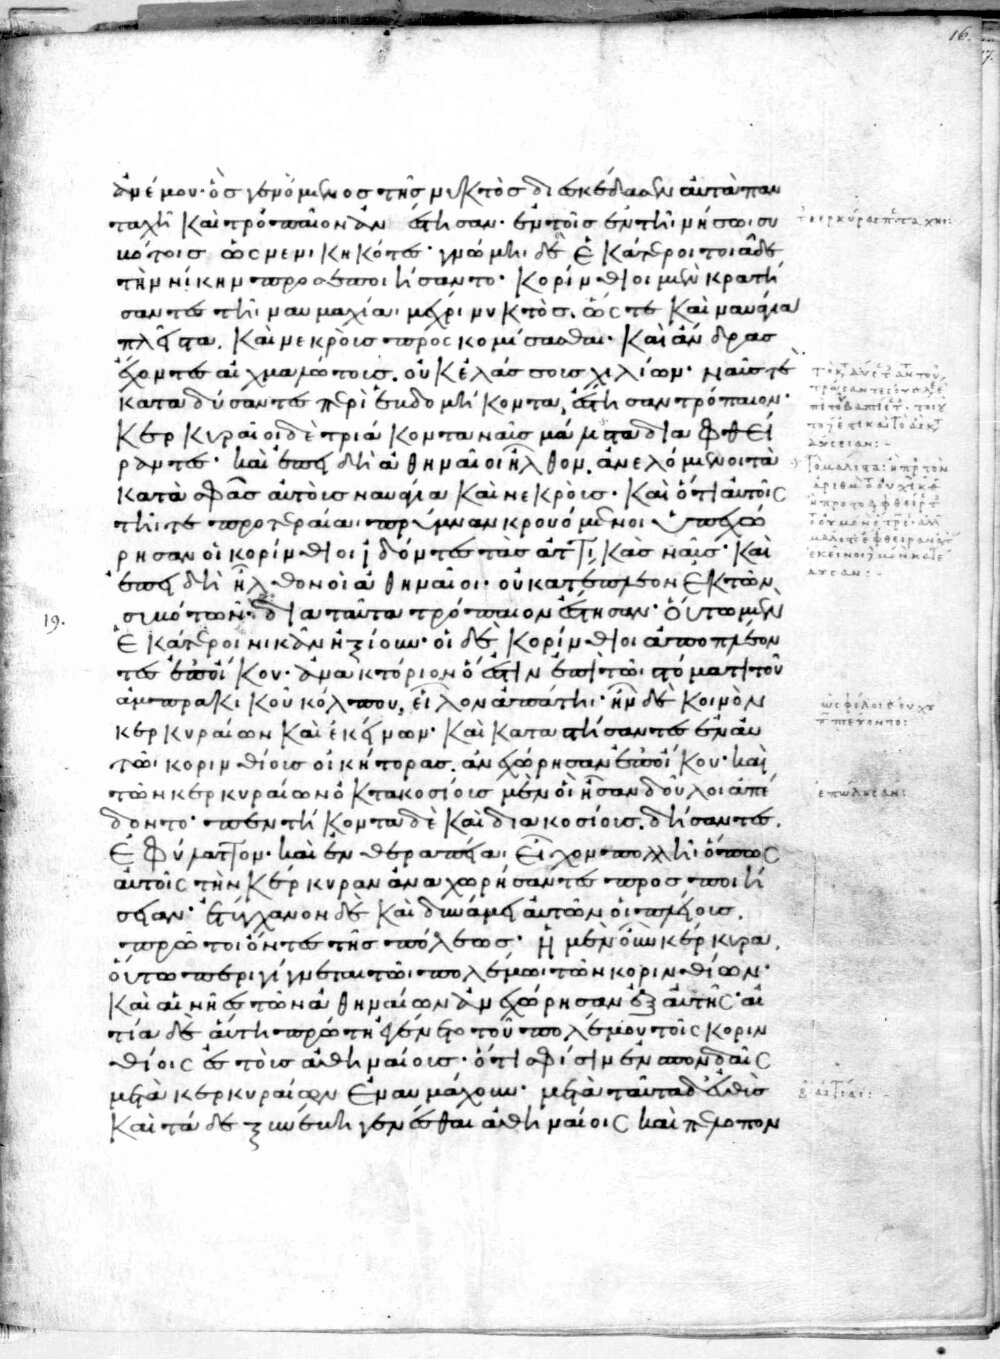 ἀνέμου· ὃς γενόμενος τῆς νυκτὸς διεσκέδασεν αὐτὰ παν
ταχῆ καὶ τρόπαιον ἀν έστησαν· ἐν τοῖς ἐν τῆ νήσω συ
βότοις ὡς νενικηκότες· γνώμη δὲ ἑκάτεροι τοιᾶδε
τὴν νίκην προσεποιήσαντο· κορίνθιοι μὲν κρατή
σαντες τῆ ναυμαχία μέχρι νυκτὸς. ὥς τε καὶ ναυάγια
πλεῖστα. καὶ νεκροὺς προσκομίσασθαι· καὶ ἄνδρας
ἔχοντες αἰχμαλώτους. οὐκ ἐλάσσους χιλίων· ναῦς τὲ
καταδύσαντες περὶ ἑβδομήκοντα, ἔστησαν τρόπαιον·
κερκυραῖοι δὲ τριάκοντα ναῦς μάλιστα διαφθεί
ραντες· καὶ ἐπειδὴ ἀθηναῖοι ἦλθον. ἀνελόμενοι τὰ
κατὰ σφᾶς αὐτοὺς ναυάγια καὶ νεκροὺς. καὶ ὅτι αὐτοῖς
τῆ τε προτεραία πρύμναν κρουόμενοι ὑπεχώ
ρησαν οἱ κορίνθιοι ἰδόντες τὰς ἀττικὰς ναῦς· καὶ
ἐπειδὴ ἦλθον οἱ ἀθηναῖοι. οὐκ ἀντέπλεον ἐκ τῶν
συβότων· διαταῦτα τρόπαιον ἔστησαν· οὕτω μὲν
19.
ἑκάτεροι νικᾶν ἠξίουν· οἱ δὲ κορίνθιοι ἀποπλέον
τες ἐποίκου· ἀνακτόριον ὅ ἐστιν ἐπὶ τῶ στόματι τοῦ
ἀμπρακικοῦ κόλπου, εἷλον ἀπάτη· ἦν δὲ κοινὸν
κερκυραίων καὶ ἐκείνων· καὶ καταστήσαντες ἐν αυ
τῶ κορινθίους οἰκήτορας. ἀνεχώρησαν ἐποίκου· καὶ
τῶν κερκυραίων ὀκτακοσίους μὲν οἳ ἦσαν δοῦλοι ἀπέ
δοντο· πεντήκοντα δὲ καὶ διακοσίους. δήσαντες.
ἐφύλαττον· καὶ ἐν θεραπεία· εἶχον πολλῆ· ὅπως
αὐτοῖς τὴν κέρκυραν ἀναχωρήσαντες προσποιή
σειαν· ἐτύγχανον δὲ καὶ δυνάμει αὐτῶν οἱ πλείους.
πρῶτοι ὄντες τῆς πόλεως· ἡ μὲν οὖν κέρκυρα.
οὕτω περιγίγνεται τῶ πολέμω τῶν κορινθίων·
καὶ αἱ νῆες τῶν ἀθηναίων ἀνεχώρησαν ἐξ αὐτῆς· αἰ
τία δὲ αὕτη πρώτη ἐγένετο τοῦ πολέμου τοῖς κοριν
θίοις ἐς τοὺς ἀθηναίους· ὅτι σφίσιν ἐν σπονδαῖς
μετὰ κερκυραίων ἐναυμάχουν· μετὰ ταῦτα δ' εὐθὺς
καὶ τάδε ξυνέβη γενέσθαι ἀθηναίοις καὶ πελοπον
16.
17.